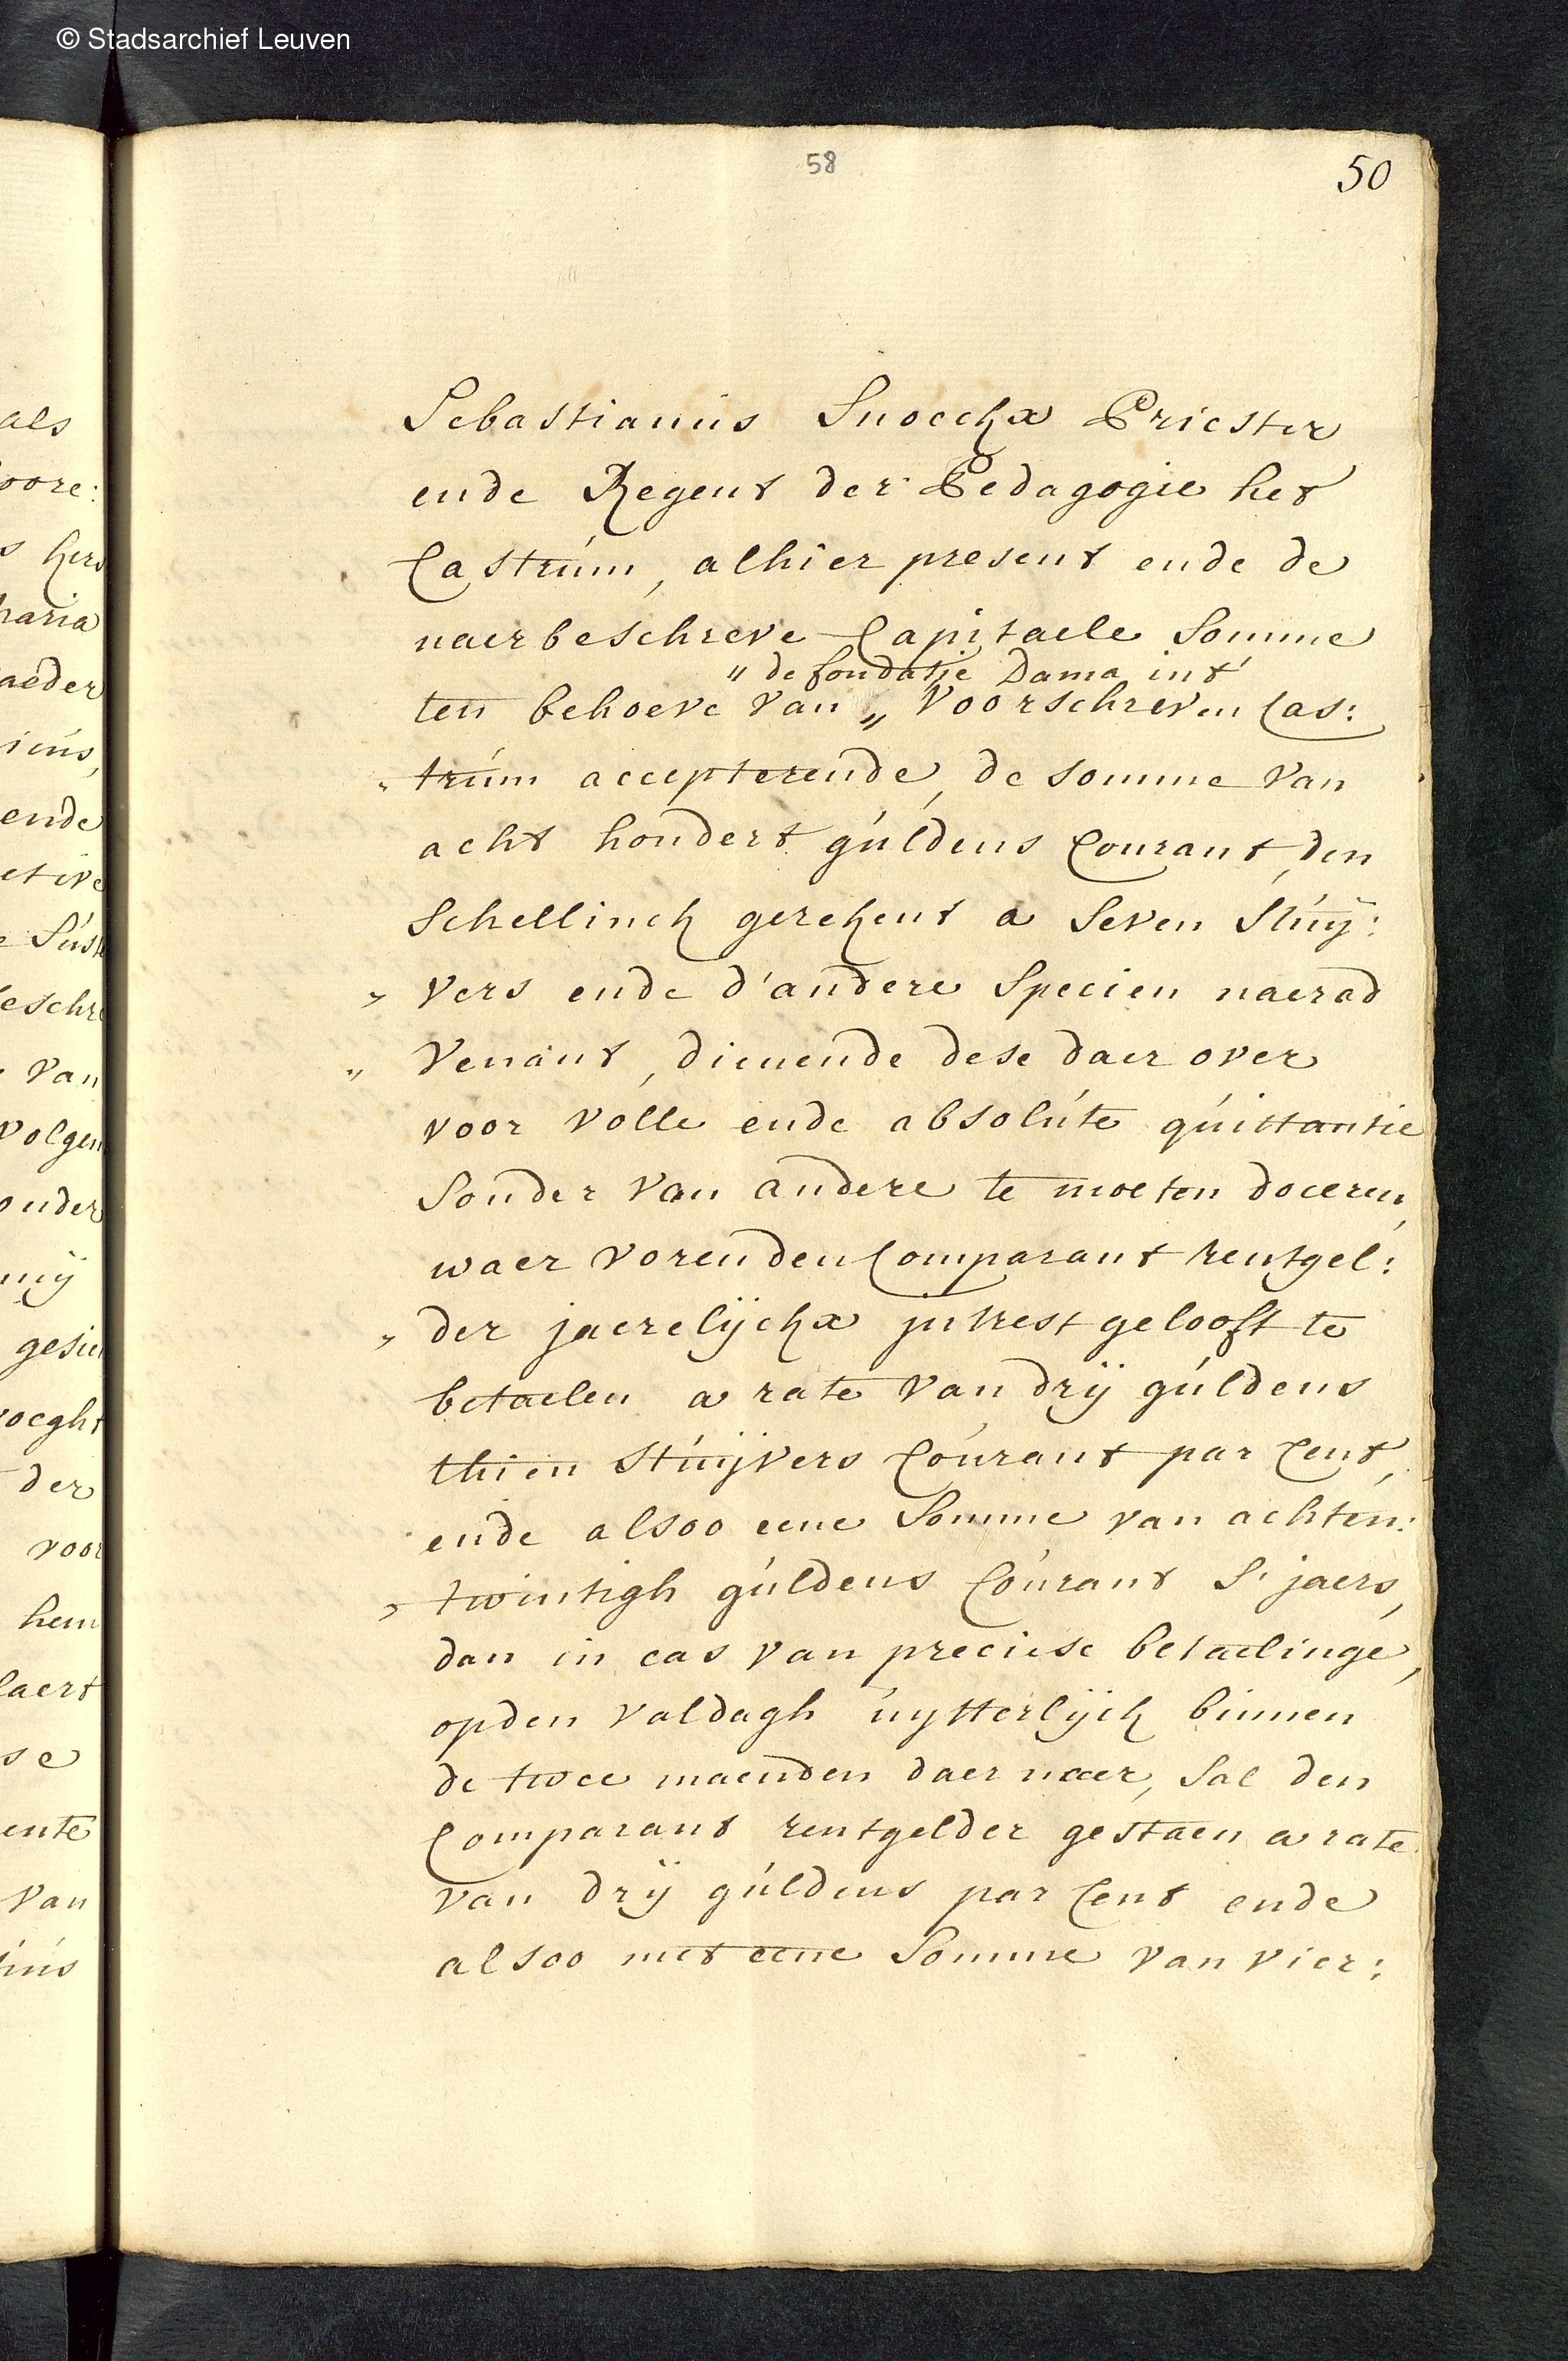 © Stadsarchief Leuven
58
50
als
oore:
s hers
haria
aeder
iùs,
ende
etive
e Sùst
eschre
van
volgen
onder
mij
gesie
voeght
der
voor
hem
laert
se
ente
van
Sebastianùs Snoeckx Priester
ende Regent der Pedagogie het
Castrùm, alhier present ende de
naerbeschreve Capitaele Somme
" de fondatie Dama int
ten behoeve van " voorschreven Cas:
trùm accepterende, de somme van
acht hondert gùldens Courant, den
Schellinck gerekent a Seven Stùij:
vers ende d'andere Specien naerad
venant, dienende dese daer over
voor volle ende absolùte qùittantie
Sonder van andere te moeten doceren,
waer voren den Comparant rentgel:
der jaerelijckx intrest gelooft te
betaelen a rate van drij gùldens
thien Stùijvers Coùrant par Cent,
ende alsoo eene Somme van achten:
twintigh gùldens Coùrant S'jaers,
dan in cas van preciese betaelinge,
opden valdagh ùytterlijck binnen
de twee maenden daer naer, Sal den
Comparant rentgelder gestaen a rate
van drij gùldens par Cent ende
alsoo met eene Somme van vier: